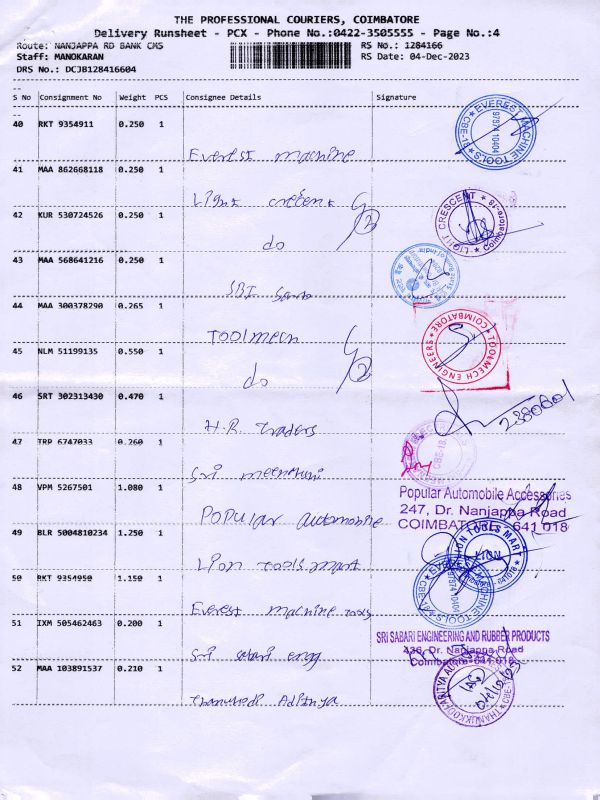 THE PROFESSIONAL COURIERS, COIMBATORE
Delivery Runsheet - PCX - Phone No.:0422-3505555 - Page No.:4
Route: NANJAPPA RD BANK CMS RS No.: 1284166
Staff: MANOKARAN RS Date: 04-Dec-2023
DRS No.: DCJB128416604
S No Consignment No Weight PCS Consignee Details Signature
40 RKT 9354911 0.250 1
Everest machine
EVEREST MACHINE TOOLS CBE-18 97874 10404
41 MAA 862668118 0.250 1
Light
LIGHT CRESCENT Coimbatore-18
42 KUR 530724526 0.250 1
do
43 MAA 568641216 0.250 1
SBI
44 MAA 300378290 0.265 1
Toolmech
TOOLMECH ENGINEERS COIMBATORE
45 NLM 51199135 0.550 1
do
46 SRT 302313430 0.470 1
H.R. traders
2380601
47 TRP 6747033 0.260 1
Sri
CBE-18
48 VPM 5267501 1.080 1
Popular automobile
Popular Automobile Accessories
247, Dr. Nanjappa Road
COIMBATORE - 641 018
49 BLR 5004810234 1.250 1
Lion tools mart
LION TOOLS MART LION
50 RKT 9354950 1.150 1
Everest machine tools
EVEREST MACHINE TOOLS CBE-18 97874 10404
51 IXM 505462463 0.200 1
Sri sabari engg
SRI SABARI ENGINEERING AND RUBBER PRODUCTS
436, Dr. Nanjappa Road
Coimbatore-641 018
52 MAA 103891537 0.210 1
Aditya